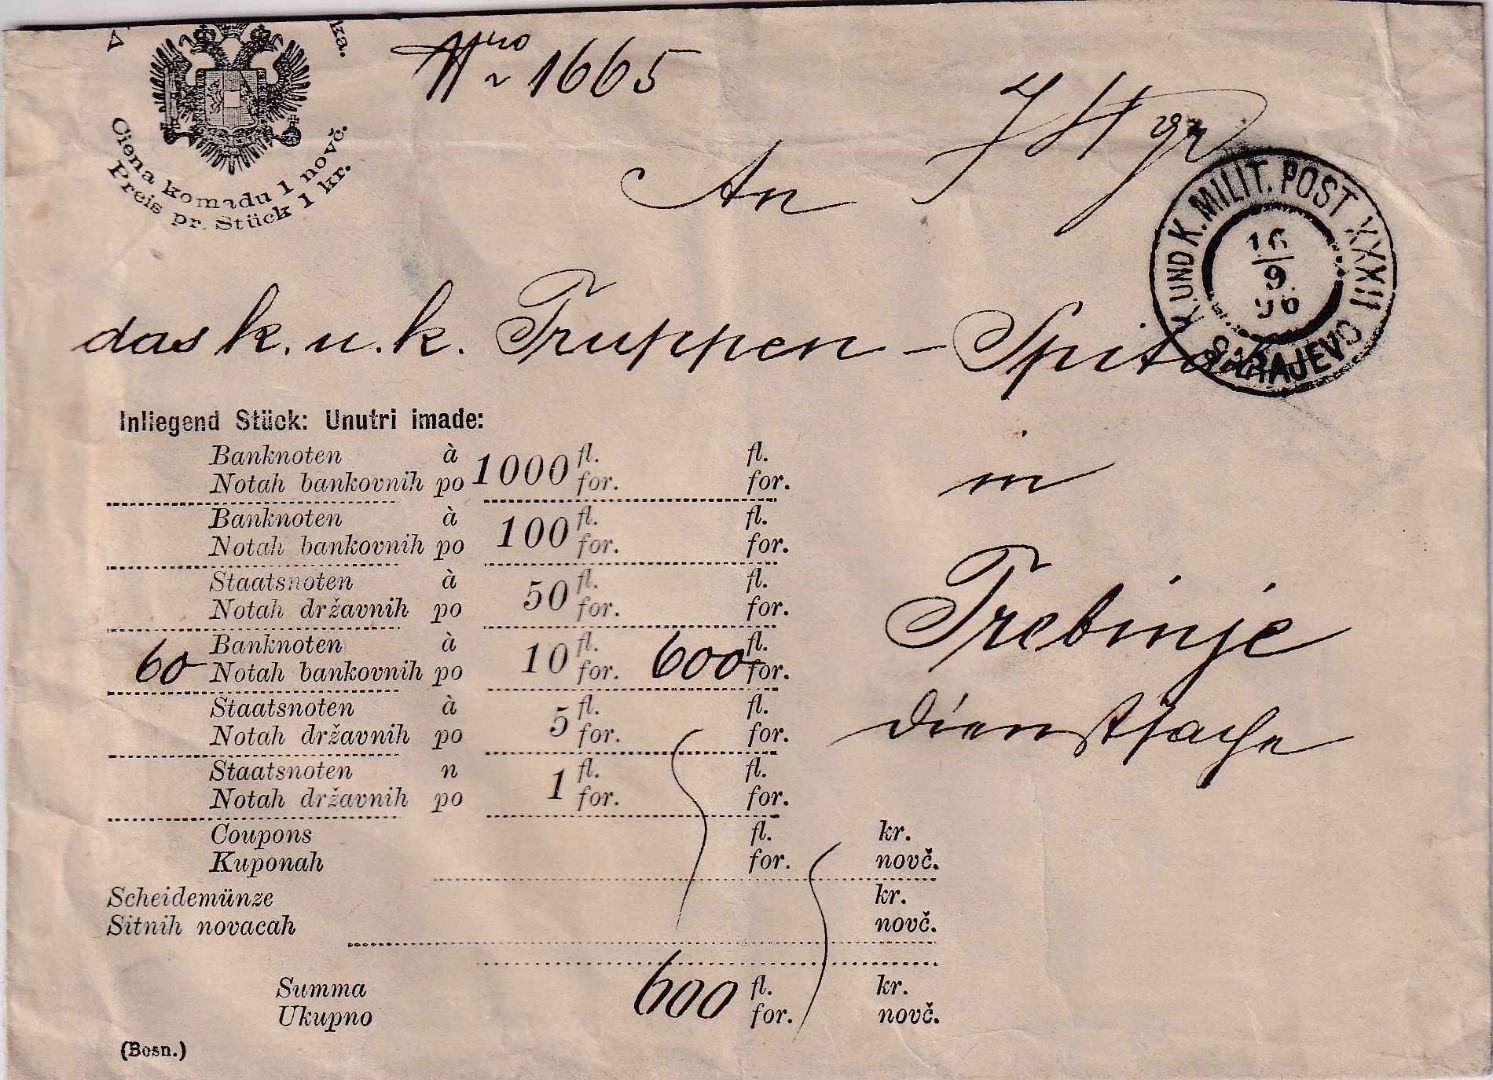 ka.
Ciena komadu 1 novč.
Preis pr. Stück 1 kr.
Nro 1665
An
K. UND K. MILIT. POST XXXII
16
9
96
SARAJEVO
das k. u. k. Truppen-Spital
in
Trebinje
Dienstsache
Inliegend Stück: Unutri imade:
Banknoten à 1000 fl. fl.
Notah bankovnih po for. for.
Banknoten à 100 fl. fl.
Notah bankovnih po for. for.
Staatsnoten à 50 fl. fl.
Notah državnih po for. for.
Banknoten à 10 fl. fl.
60 Notah bankovnih po for. 600 for.
Staatsnoten à 5 fl. fl.
Notah državnih po for. for.
Staatsnoten n 1 fl. fl.
Notah državnih po for. for.
Coupons fl. kr.
Kuponah for. novč.
Scheidemünze kr.
Sitnih novacah novč.
Summa 600 fl. kr.
Ukupno for. novč.
(Bosn.)